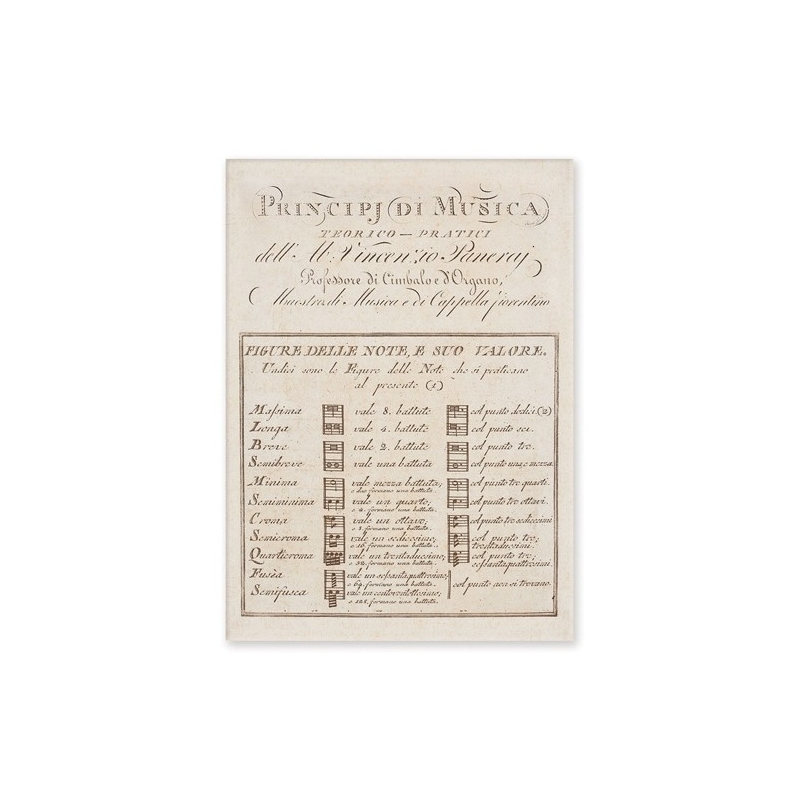 PRINCIPJ DI MUSICA
TEORICO — PRATICI
dell' Ab. Vincenzio Panerai
Professore di Cimbalo e d'Organo,
Maestro di Musica e di Cappella fiorentino
FIGURE DELLE NOTE, E SUO VALORE.
Undici sono le Figure delle Note che si praticano
al presente (1)
Massima vale 8. battute col punto dodici (2)
Longa vale 4. battute col punto sei.
Breve vale 2. battute col punto tre.
Semibreve vale una battuta col punto una e mezza.
Minima vale mezza battuta; col punto tre quarti.
e due formano una battuta.
Seminima vale un quarto; col punto tre ottavi.
e 4. formano una battuta.
Croma vale un ottavo; col punto tre sedicesimi
e 8. formano una battuta.
Semicroma vale un sedicesimo; col punto tre;
e 16. formano una battuta. trentaduesimi.
Quarticroma vale un trentaduesimo; col punto tre;
e 32. formano una battuta. sessantaquattresimi
Fusea vale un sessantaquattresimo;
e 64. formano una battuta. col punto non si trovano.
Semifusea vale un centoventottesimo;
e 128. formano una battuta.